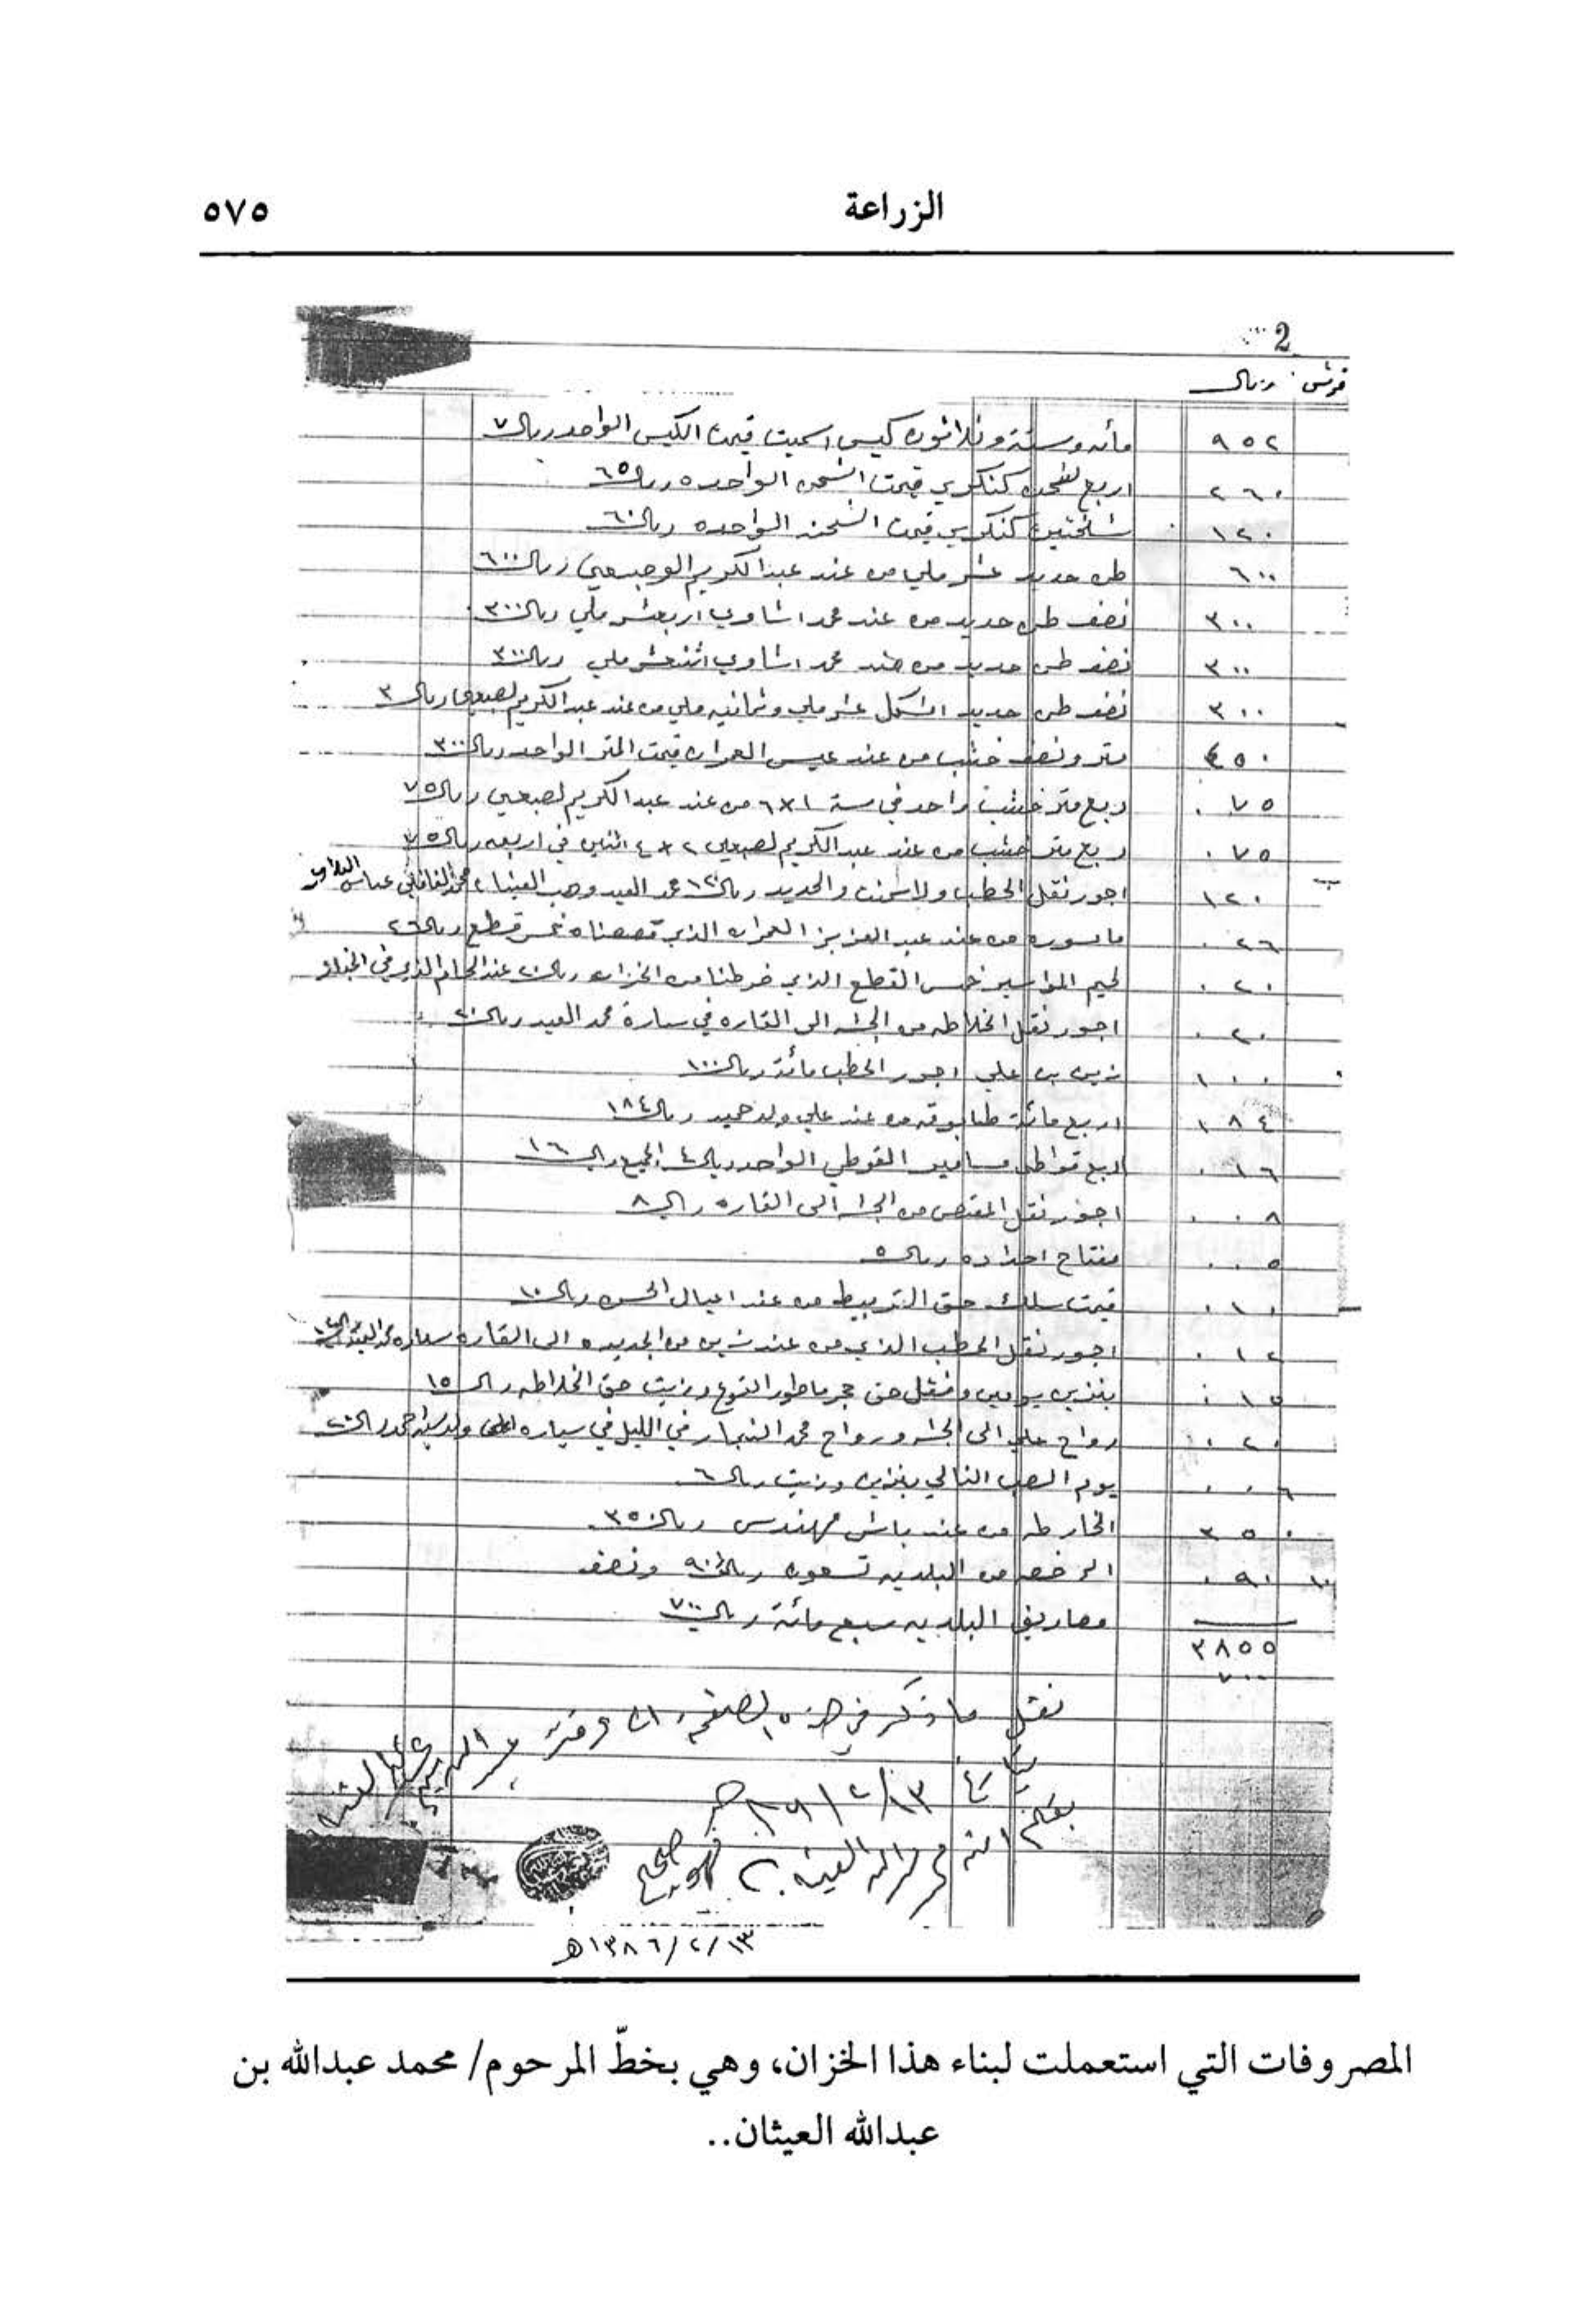 الزراعة ٥٧٥
2
قرش ريال
٩٥٢ مأئه وستة وثلاثون كيس اسميت قيمت الكيس الواحد ريال ٧
٢٦٠ اربع كنكري قيمت الشحن الواحده ريال ٦٥
١٢٠ شحنتين كنكري قيمت الشحنه الواحده ريال ٦٠
٦٠٠ طن حديد عشر ملي من عند عبدالكريم ريال ٦٠٠
٣٠٠ نصف طن حديد من عند محمد اشاوي اربعشر ملي ريال ٣٠٠
٣٠٠ نصف طن حديد من عند محمد اشاوي اثنعشر ملي ريال ٣٠٠
٣٠٠ نصف طن حديد اشكل عشر ملي وثمانيه ملي من عند عبدالكريم لصبعي ريال ٣
٤٥٠ متر ونصف خشب من عند عيسى العمران قيمت المتر الواحد ريال ٣٠٠
٠٧٥ ربع متر خشب واحد في ستة ١×٦ من عند عبدالكريم لصبعي ريال ٧٥
٠٧٥ ربع متر خشب من عند عبدالكريم لصبعي ٢×٤ اثنين في اربعه ريال ٧٥
١٢٠ اجور نقل الحطب ولاسمنت والحديد ريال ١٢٠ محمد العيد وهب عباس
٠٢٦ ماسوره من عند عبد العزيز العمران الذي قصصناه خمس قطع ريال ٢٦
٠٢٠ لحيم المواسير خمس القطع الذي خرطنا من الخزان ريال ٢٠ عند الذي في
٠٢٠ اجور نقل الخلاطه من الجشه الى القاره في سيارة محمد العيد ريال ٢٠
١٠٠ زين بن علي اجور الحطب مائة ريال ١٠٠
١٨٤ اربع مائة طابوقه من عند علي ولد حميد ريال ١٨٤
٠١٦ اربع قواطي مسامير القوطي الواحد ريال ٤ الجميع ريال ١٦
٠٠٨ اجور نقل المقص من الجشه الى القاره ريال ٨
٠٠٥ مفتاح احداده ريال ٥
٠١٠ قيمت سلك حق التربيط من عند اعيال الحسن ريال ١٠
٠١٢ اجور نقل الحطب الذي من عند زين من الجديده الى القاره سياره محمد
٠١٥ بنزين يومين حق حجر ماطور النوع وزيت حق الخلاطه ريال ١٥
٠٢٠ رواح علي الى الجشه ورواح محمد النجار في الليل في سياره ولد ريال ٢٠
٠٠٦ يوم الصب التالي بنزين وزيت ريال ٦
٣٥٠ الخارطه من عند باش مهندس ريال ٣٥٠
١٠ ٠٩٠ الرخصه من البلديه تسعون ريال ٩٠ ونصف
مصاريف البلديه سبع مائة ريال ٧٠٠
٣٨٥٥
٧٠٠
نقل ما ذكر في هذه الصفحه
بتاريخ ١٣/٢
بقلم
صحيح
١٣/٢/١٣٨٦هـ
المصروفات التي استعملت لبناء هذا الخزان، وهي بخطّ المرحوم/ محمد عبدالله بن
عبدالله العيثان..